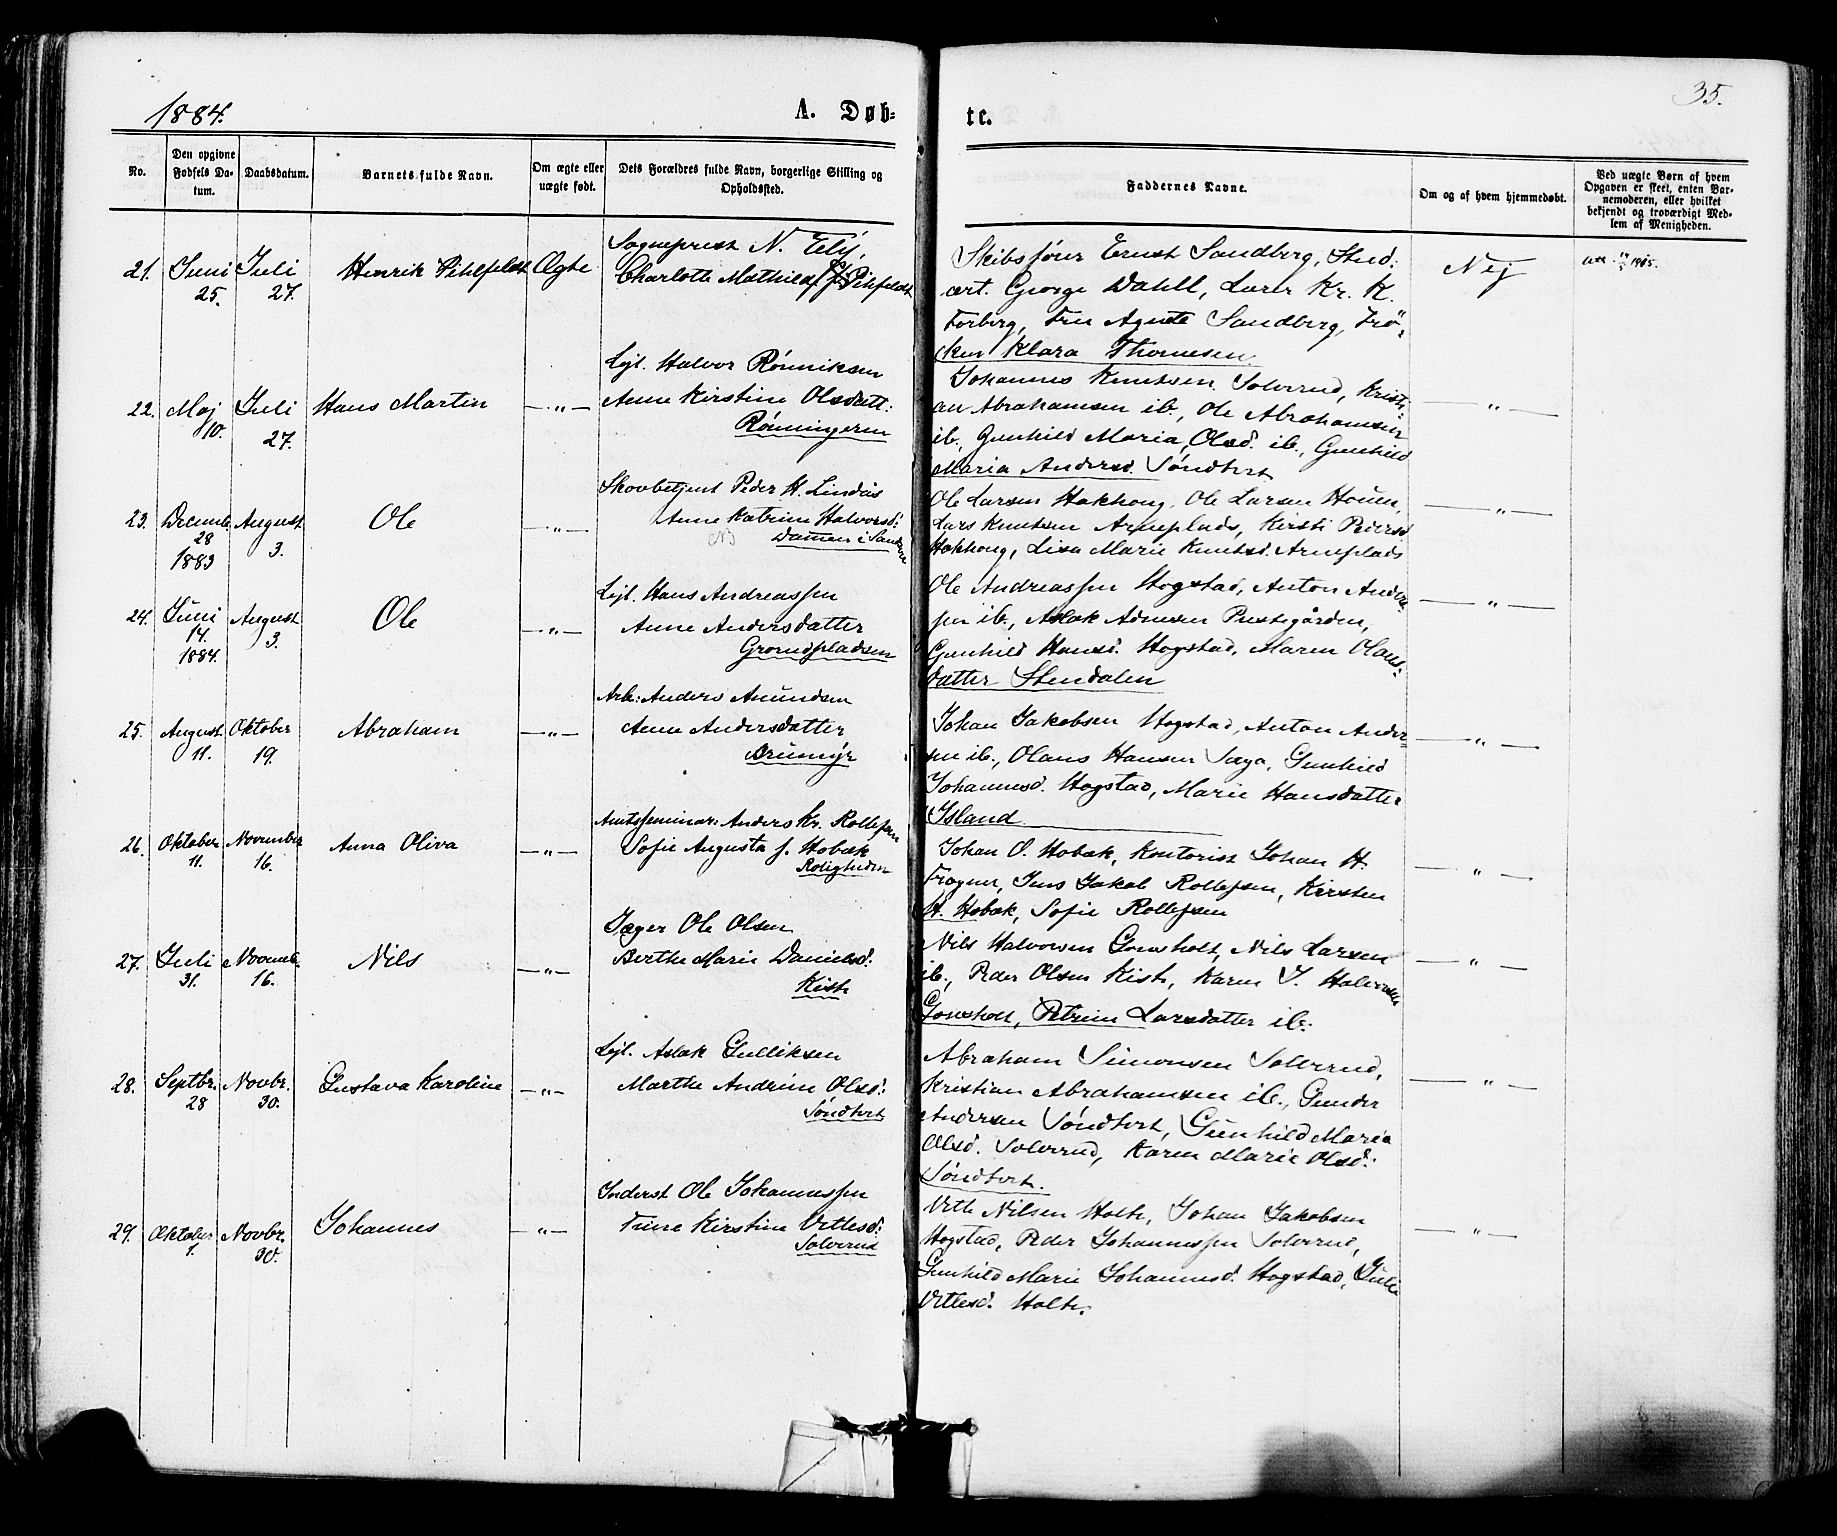 1884.
A. Døb=
te.
35.
No.
Den opgivne
Fødsels Da-
tum.
Daabsdatum.
Barnets fulde Navn.
Om ægte eller
uægte født.
Dets Forældres fulde Navn, borgerlige Stilling og
Opholdssted.
Faddernes Navne.
Om og af hvem hjemmedøbt.
Ved uægte Børn af hvem
Opgaven er skeet, enten Bar-
nemoderen, eller hvilket
bekjendt og troværdigt Med-
lem af Menigheden.
21.
Juni
25.
Juli
27.
Henrik Pihlfeldt
Ægte
Sogneprest N.
Charlotte Mathilde f. Pihlfeldt
Skibsfører Ernst Sandberg, Stud:
art. George Dahll, Lærer Kr. K.
Forberg, Fru Agnete Sandberg, Frö-
ken Klara Thomesen
Nej
1905.
22.
Maj
10.
Juli
27.
Hans Martin
—„—
Lejl. Halvor Rønniksen
Anne Kirstine Olsdatt:
Rønningeren
Johannes Knutsen Solverud, Kristi-
an Abrahamsen ib., Ole Abrahamsen
ib., Gunhild Maria Olsd. ib., Gunhild
Maria Andersd. Søndtvet
—„—
23.
Decemb.
28
1883
August
3.
Ole
—„—
Skovbetjent Peder H. Lindås
Anne Katrine Halvorsd:
Dammen i
Ole Larsen Hakhong, Ole Larsen Houen,
Lars Knutsen Arneplads, Kirsti Pedersd
Hakhong, Lisa Marie Knutsd. Arneplads
—„—
24.
Juni
14.
1884.
August
3.
Ole
—„—
Lejl. Hans Andreassen
Anne Andersdatter
Gromdpladsen
Ole Andreassen Hogstad, Anton Ander-
sen ib., Aslak Adnesen Prestegården,
Gunhild Hansd. Hogstad, Maren Olaus-
datter Stendalen
—„—
25.
August
11.
Oktober
19.
Abraham
—„—
Arb: Anders Amundsen
Anne Andersdatter
Brumyr
Johan Jakobsen Hogstad, Anton Ander-
sen ib., Olaus Hansen Saga, Gunhild
Johannesd. Hogstad, Marie Hansdatter
Island
—„—
26.
Oktober
11.
November
16.
Anna Oliva
—„—
Amtsseminar: Anders Kr. Rollefsen
Sofie Augusta f. Hobæk
Roligheden
Johan O. Hobæk, Kontorist Johan H.
Frogner, Jens Jakob Rollefsen, Kirsten
H. Hobæk, Sofie Rollefsen
—„—
27.
Juli
31.
Novemb.
16.
Nils
—„—
Jæger Ole Olsen
Berthe Marie Danielsd:
Kiste
Nils Halvorsen Gonsholt, Nils Larsen
ib., Peder Olsen Kiste, Karen J. Halvorsen
Gonsholt, Petrine Larsdatter ib.
—„—
28.
Septbr.
28
Novbr.
30.
Gustava Karoline
—„—
Lejl. Aslak Gulliksen
Marthe Andrine Olsd:
Søndtvet
Abraham Simonsen Solverud,
Kristian Abrahamsen ib., Gunder
Andersen Søndtvet, Gunhild Maria
Olsd. Solverud, Karen Marie Olsd:
Søndtvet.
—„—
29.
Oktober
1.
Novbr.
30.
Johannes
—„—
Inderst Ole Johannessen
Trine Kirstine Vetlesd:
Solverud
Vetle Nilsen Holte, Johan Jakobsen
Hogstad, Peder Johannessen Solverud,
Gunhild Marie Johannesd. Hogstad, Juli
Vetlesd. Holte.
—„—